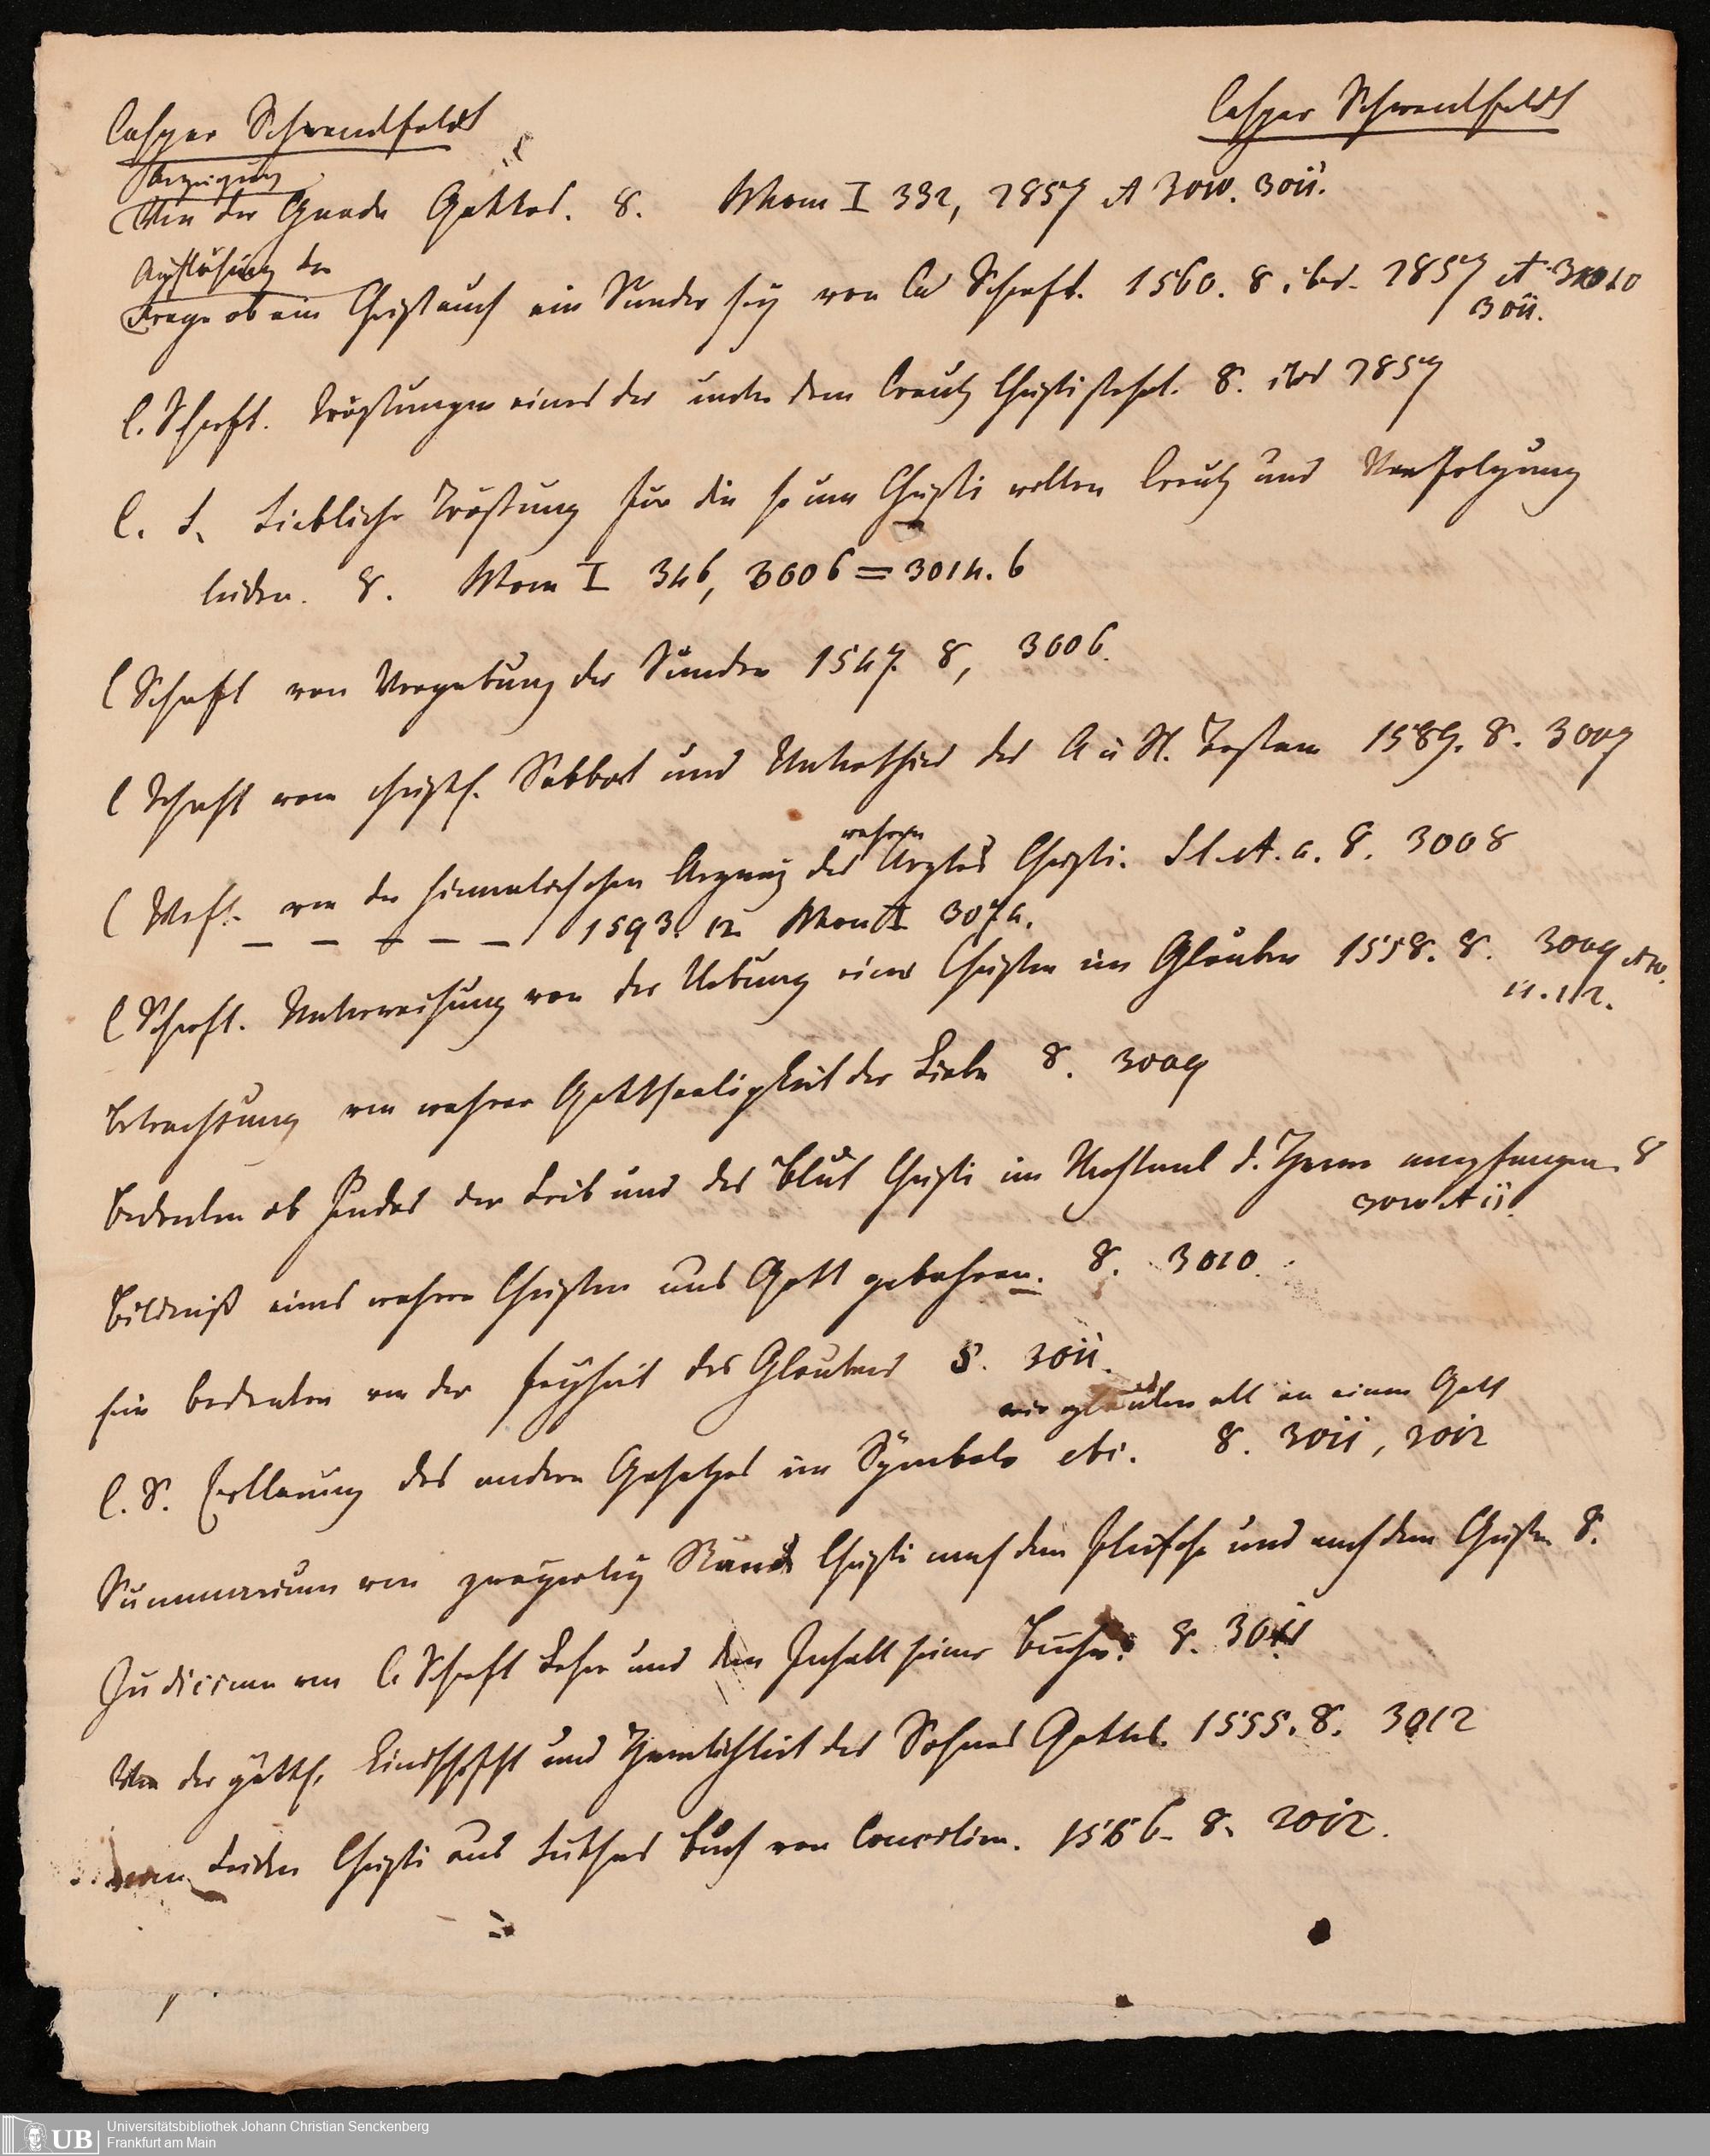 Casper Schwenkfeldt
Casper Schwenkfeldt
Anzeigung
Von der Gnade Gottes. 8. Thom I 332, 2857 A 3010. 3011.
Auflösung der
Frage ob ein Christ auch ein Sunder sey von Ca Schwft. 1560. 8. ibd. 2857 A 3010
3011.
C. Schwft. Tröstungen eines der unter dem Creutz Christi stehet. 8. ibd 2857
C. S. Liebliche Tröstung für die so um Christi willen Creutz und Verfolgung
leiden. 8. Thom I 346, 3006 = 3014. 6
C Schwft von Vergebung der Sunden 1547. 8, 3006.
C Schwft vom christl. Sabbat und Unterschied des A u N. Testam 1589. 8. 3009
wahren
C Schwft. von der himmelischen Arzney des Arztes Christi. S. l. et. a. 8. 3008
_ _ _ _ _ 1593. 12 Thom I 307a.
C Schwft. Unterweisung von der Uebung eines Christen im Glauben 1558. 8. 3009 A 10.
11. 12.
Betrachtung von wahrer Gottseeligkeit der Liebe 8. 3009
Bedenken ob Judas den Leib und das Blut Christi im Nachtmal d. Herrn empfangen. 8
3010 A 11.
Bildniß eines wahren Christen aus Gott gebohren. 8. 3010.
Ein bedenken von der freyheit des Glaubens 8. 3011.
wir glauben all an einen Gott
C. S. Erklarung des andern Gesetzes im Symbolo 8. 3011, 3012
Summarium von zweyerley Stande Christi nach dem fleische und nach dem Geiste 8.
Judicium von C. Schwft Lehre und dem Inhalt seiner Bücher. 8. 3011
Von der göttl. Kindschafft und Herrlichkeit des Sohnes Gottes. 1555. 8. 3012
Vom Leiden Christi aus Luthers Buch von Concilien. 1556. 8. 3012.
Universitätsbibliothek Johann Christian Senckenberg
Frankfurt am Main
UB